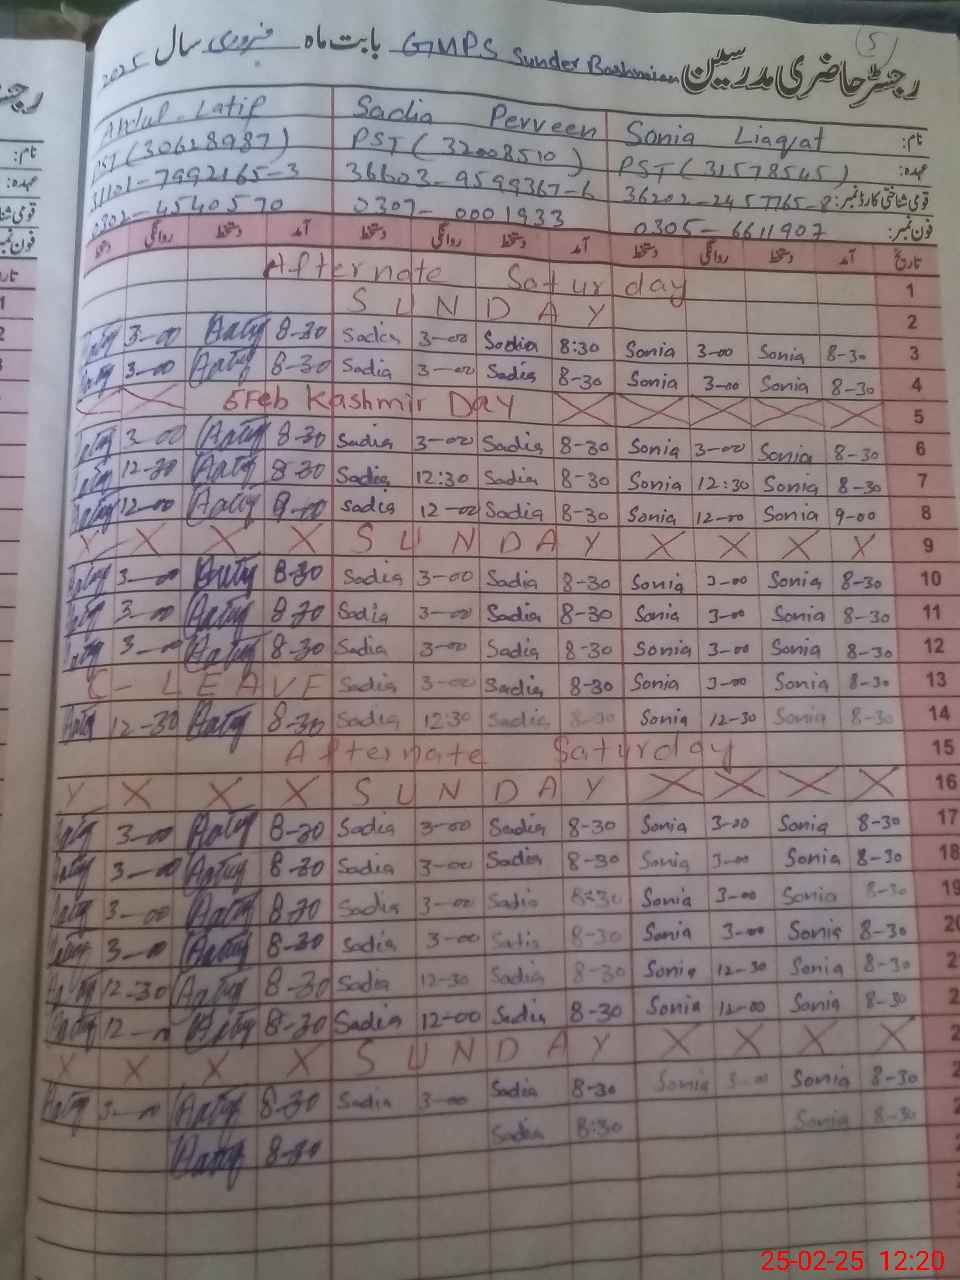 5
رجسٹر حاضری مدرسین GMPS Sunder Bashmian بابت ماہ فروری سال 2025
نام: Sonia Liaqat Sadia Perveen Abdul Latif
عہدہ: PST (31578545) PST (32008510) PST (30628987)
قومی شناختی کارڈ نمبر: 36202-2457765-8 36603-9599367-6 31101-7992165-3
فون نمبر: 0305-6611907 0307-0001933 0302-4540570
تاریخ آمد دستخط روانگی دستخط آمد دستخط روانگی دستخط آمد دستخط روانگی دستخط
Alternate Saturday 1
S U N D A Y 2
3-00 8-30 Sadia 3-00 Sadia 8:30 Sonia 3-00 Sonia 8-30 3
3-00 8-30 Sadia 3-00 Sadia 8-30 Sonia 3-00 Sonia 8-30 4
X X 5 Feb Kashmir DAY X X X X X 5
3-00 8-30 Sadia 3-00 Sadia 8-30 Sonia 3-00 Sonia 8-30 6
12-30 8-30 Sadia 12:30 Sadia 8-30 Sonia 12:30 Sonia 8-30 7
12-00 9-00 Sadia 12-00 Sadia 8-30 Sonia 12-00 Sonia 9-00 8
X X X X S U N D A Y X X X X 9
3-00 8-30 Sadia 3-00 Sadia 8-30 Sonia 3-00 Sonia 8-30 10
3-00 8-30 Sadia 3-00 Sadia 8-30 Sonia 3-00 Sonia 8-30 11
3-00 8-30 Sadia 3-00 Sadia 8-30 Sonia 3-00 Sonia 8-30 12
C- L E A V E Sadia 3-00 Sadia 8-30 Sonia 3-00 Sonia 8-30 13
12-30 8-30 Sadia 12:30 Sadia 8-30 Sonia 12-30 Sonia 8-30 14
Alternate Saturday 15
X X X X S U N D A Y X X X X 16
3-00 8-30 Sadia 3-00 Sadia 8-30 Sonia 3-00 Sonia 8-30 17
3-00 8-30 Sadia 3-00 Sadia 8-30 Sonia 3-00 Sonia 8-30 18
3-00 8-30 Sadia 3-00 Sadia 8:30 Sonia 3-00 Sonia 8-30 19
3-00 8-30 Sadia 3-00 Sadia 8-30 Sonia 3-00 Sonia 8-30 20
12-30 8-30 Sadia 12-30 Sadia 8-30 Sonia 12-30 Sonia 8-30 2
12- 8-30 Sadia 12-00 Sadia 8-30 Sonia 12-00 Sonia 8-30 2
X X X X S U N D A Y X X X X 2
3-00 8-30 Sadia 3-00 Sadia 8-30 Sonia 3-00 Sonia 8-30 2
8-30 Sadia 8:30 Sonia 8-30 2
25-02-25 12:20